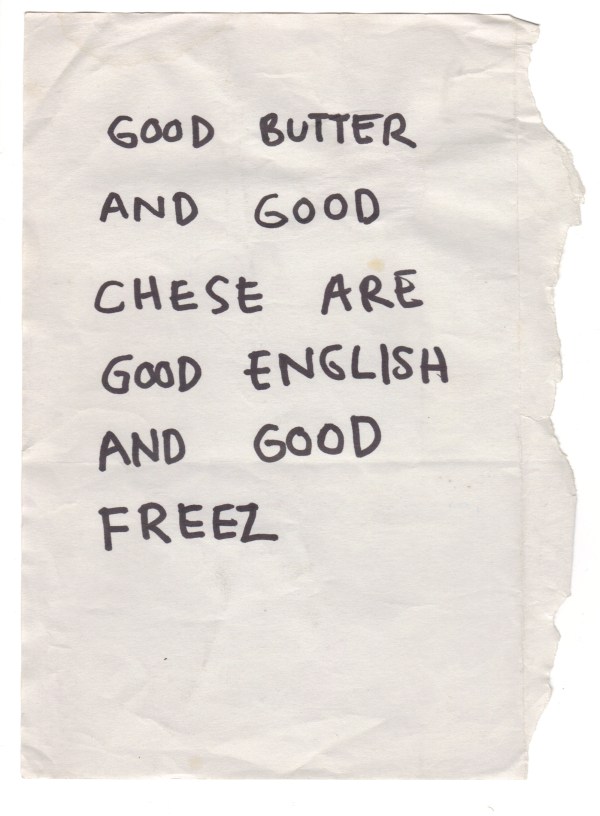 GOOD BUTTER
AND GOOD
CHESE ARE
GOOD ENGLISH
AND GOOD
FREEZ